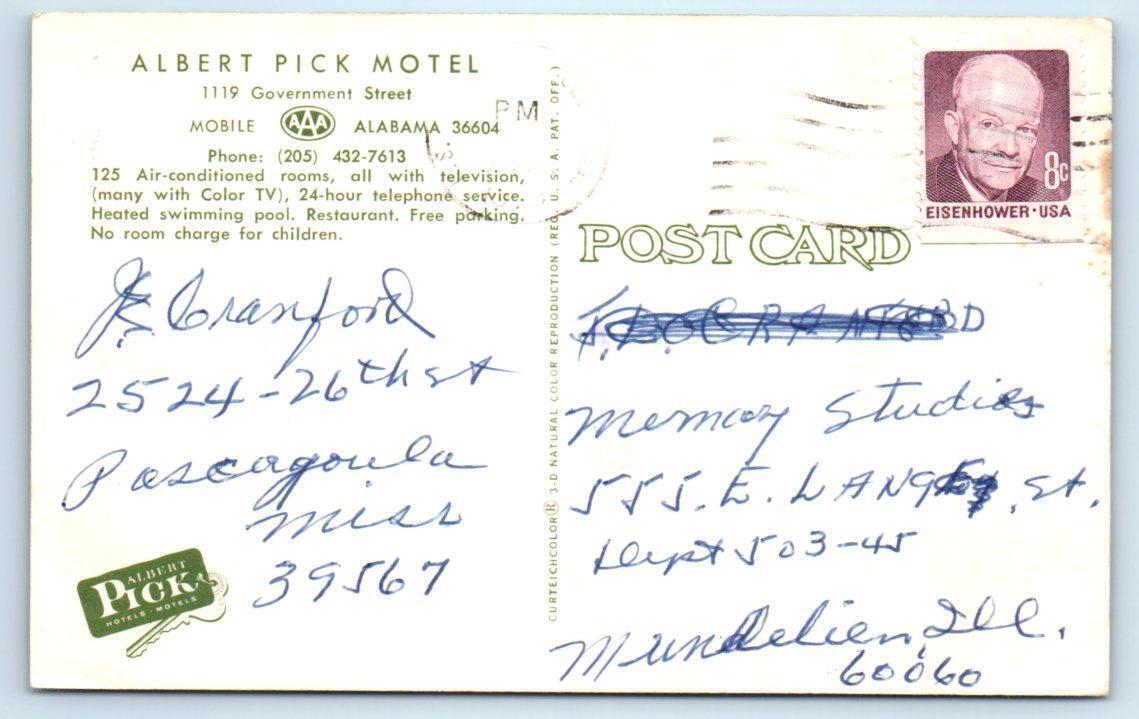 ALBERT PICK MOTEL
1119 Government Street
MOBILE AAA ALABAMA 36604
Phone: (205) 432-7613
125 Air-conditioned rooms, all with television,
(many with Color TV), 24-hour telephone service.
Heated swimming pool. Restaurant. Free parking.
No room charge for children.
J. Cranford
2524-26th st
Pascagoula
Miss
39567
ALBERT
PICK
HOTELS · MOTELS
CURTEICHCOLOR® 3-D NATURAL COLOR REPRODUCTION (REG. U. S. A. PAT. OFF.)
PM
8c
EISENHOWER · USA
POST CARD
Memory Studios
555. E. LANGE, St.
Dept 503-45
Mundelien, Ill.
60060